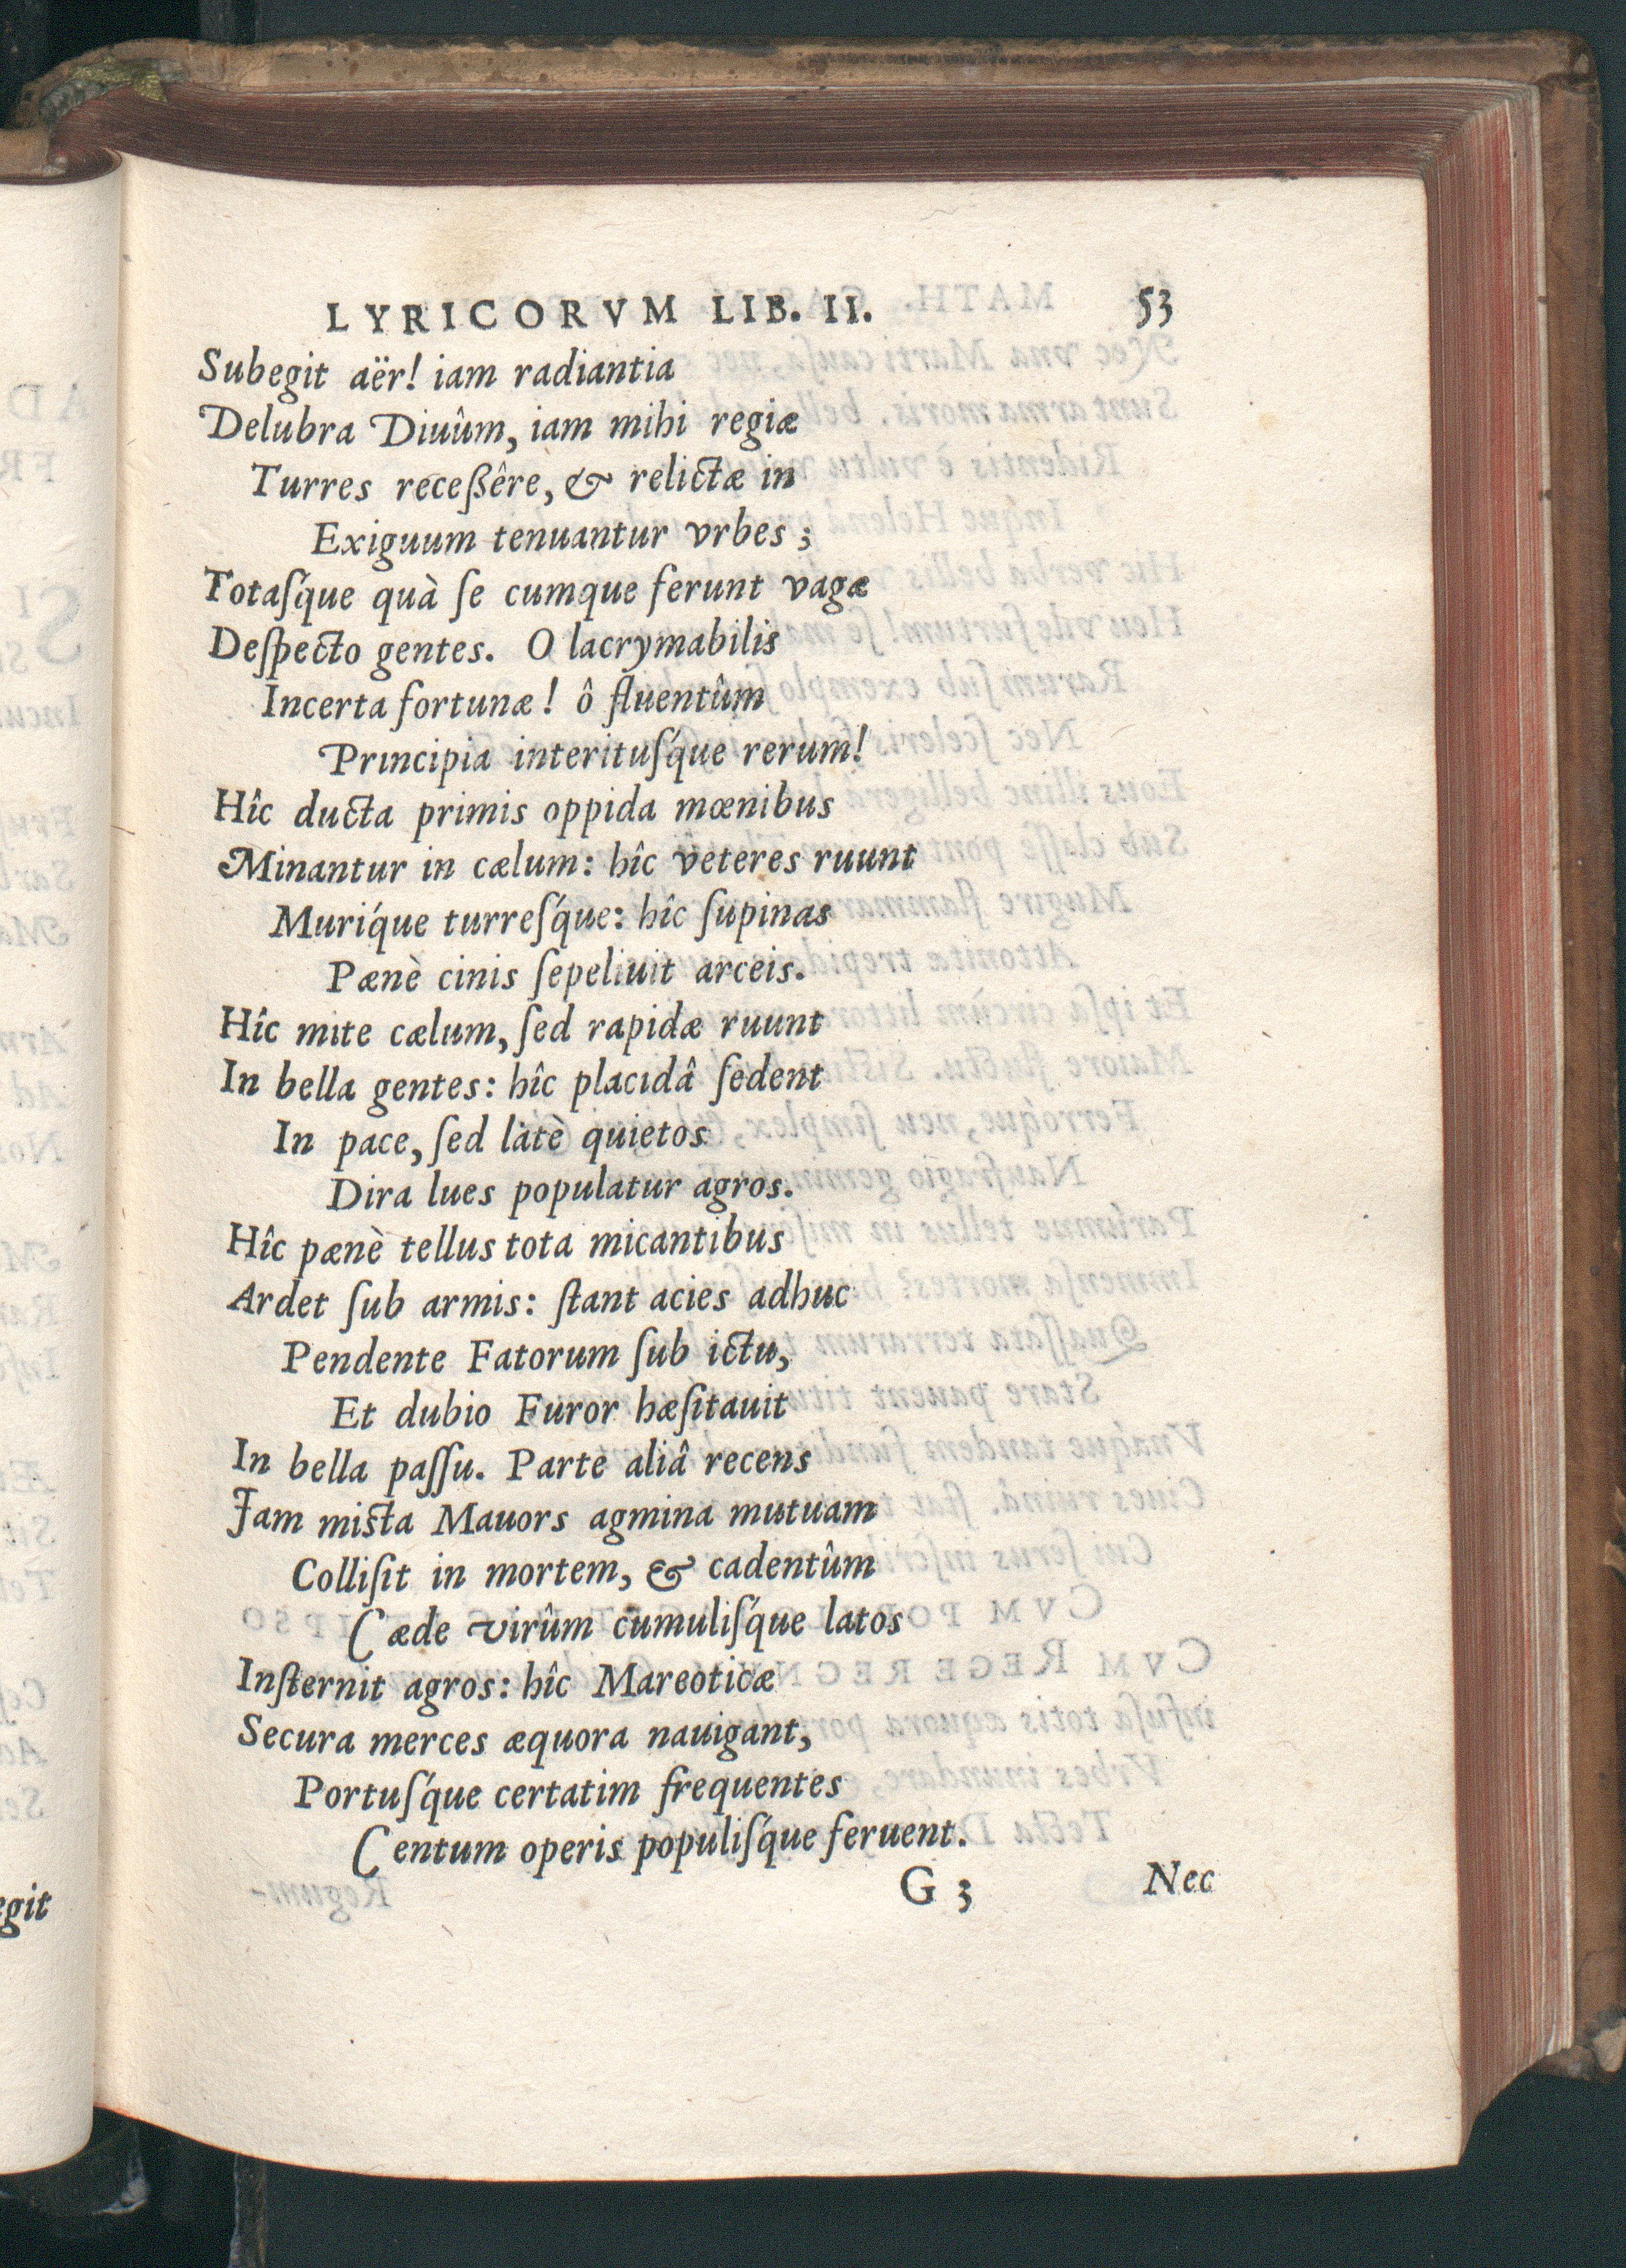 LYRICORVM LIB. II. 53
Subegit aër! iam radiantia
Delubra Diuûm, iam mihi regiæ
Turres receßêre, & relictæ in
Exiguum tenuantur vrbes;
Totaſq́ue quà ſe cumque ferunt vagæ
Deſpecto gentes. O lacrymabilis
Incerta fortunæ! ô fluentûm
Principia interituſq́ue rerum!
Hîc ducta primis oppida mœnibus
Minantur in cælum: hîc veteres ruunt
Muriq́ue turreſq́ue: hîc ſupinas
Pænè cinis ſepeliuit arceis.
Hîc mite cælum, ſed rapidæ ruunt
In bella gentes: hîc placidâ ſedent
In pace, ſed latè quietos
Dira lues populatur agros.
Hîc pænè tellus tota micantibus
Ardet ſub armis: ſtant acies adhuc
Pendente Fatorum ſub ictu,
Et dubio Furor hæſitauit
In bella paſſu. Parte aliâ recens
Jam miſta Mauors agmina mutuam
Colliſit in mortem, & cadentûm
Cæde virûm cumuliſq́ue latos
Inſternit agros: hîc Mareoticæ
Secura merces æquora nauigant,
Portuſq́ue certatim frequentes
Centum operis populiſq́ue feruent.
G 3 Nec
egit